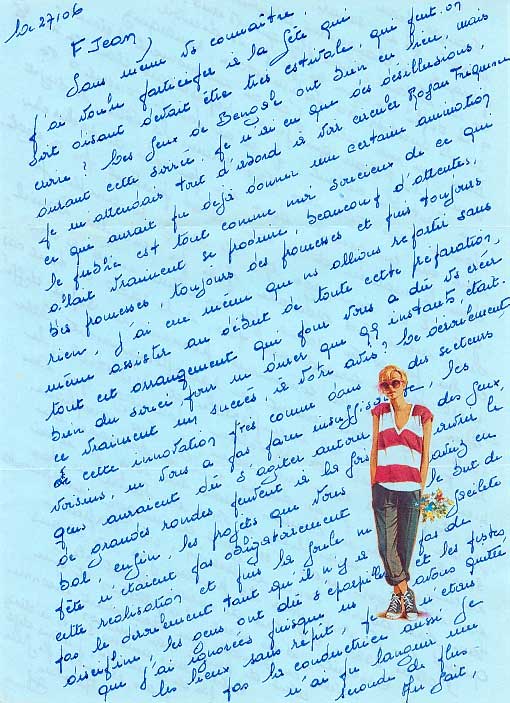 Le 27106
F Jean,
Sans même vs connaître,
j'ai voulu participer à la fête qui
soit disant devait être très estivale, qui peut-on
croire ? Les feux de Bengale ont bien eu lieu, mais
durant cette soirée. Je n'ai eu que des désillusions,
je m'attendais tout d'abord à voir circuler Rogan
ce qui aurait pu déjà donner une certaine animation
le public est tout comme moi soucieux de ce qui
allait vraiment se produire, beaucoup d'attentes,
des promesses, toujours des promesses et puis toujours
rien, j'ai cru même que ns allions repartir sans
même assister au début de toute cette préparation,
tout cet arrangement qui pour vous a dû vs créer
bien du souci, pour ne durer que 99 instants, était-
ce vraiment un succès, à votre avis ? Le déroulement
de cette innovation près comme dans des secteurs
voisins, ne vous a pas paru insuffisante, les
gens auraient dû s'agiter autour des feux,
de grandes rondes peuvent à la fois ouvrir le
bal, enfin, les projets que vous aviez en
fête n'étaient pas obligatoirement le but de
cette réalisation et puis la foule ne facilite
pas le déroulement tant qu'il n'y a pas de
discipline, les gens ont dû s'éparpiller et les pistes
que j'ai ignorées puisque ns avons quitté
les lieux sans répit, je n'étais
pas la conductrice aussi je
n'ai pu languir une
seconde de plus.
Au fait,